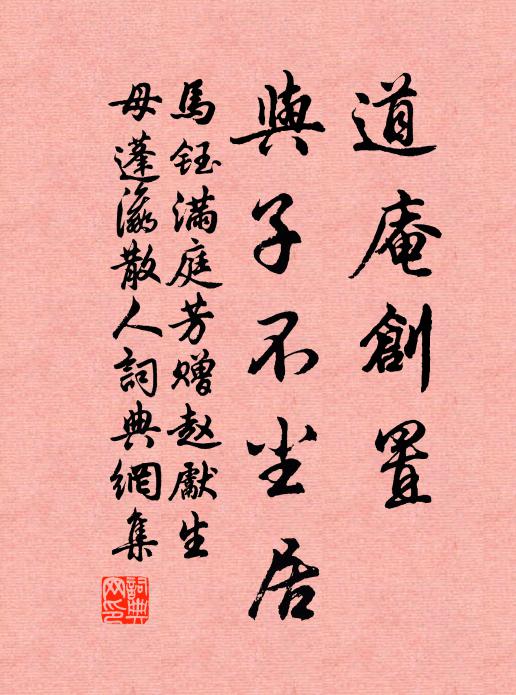 道庵創置
與子不坐居
馬鈺滿庭芳贈赵獻生
母蓬瀛散人詞典網集
詞典网印